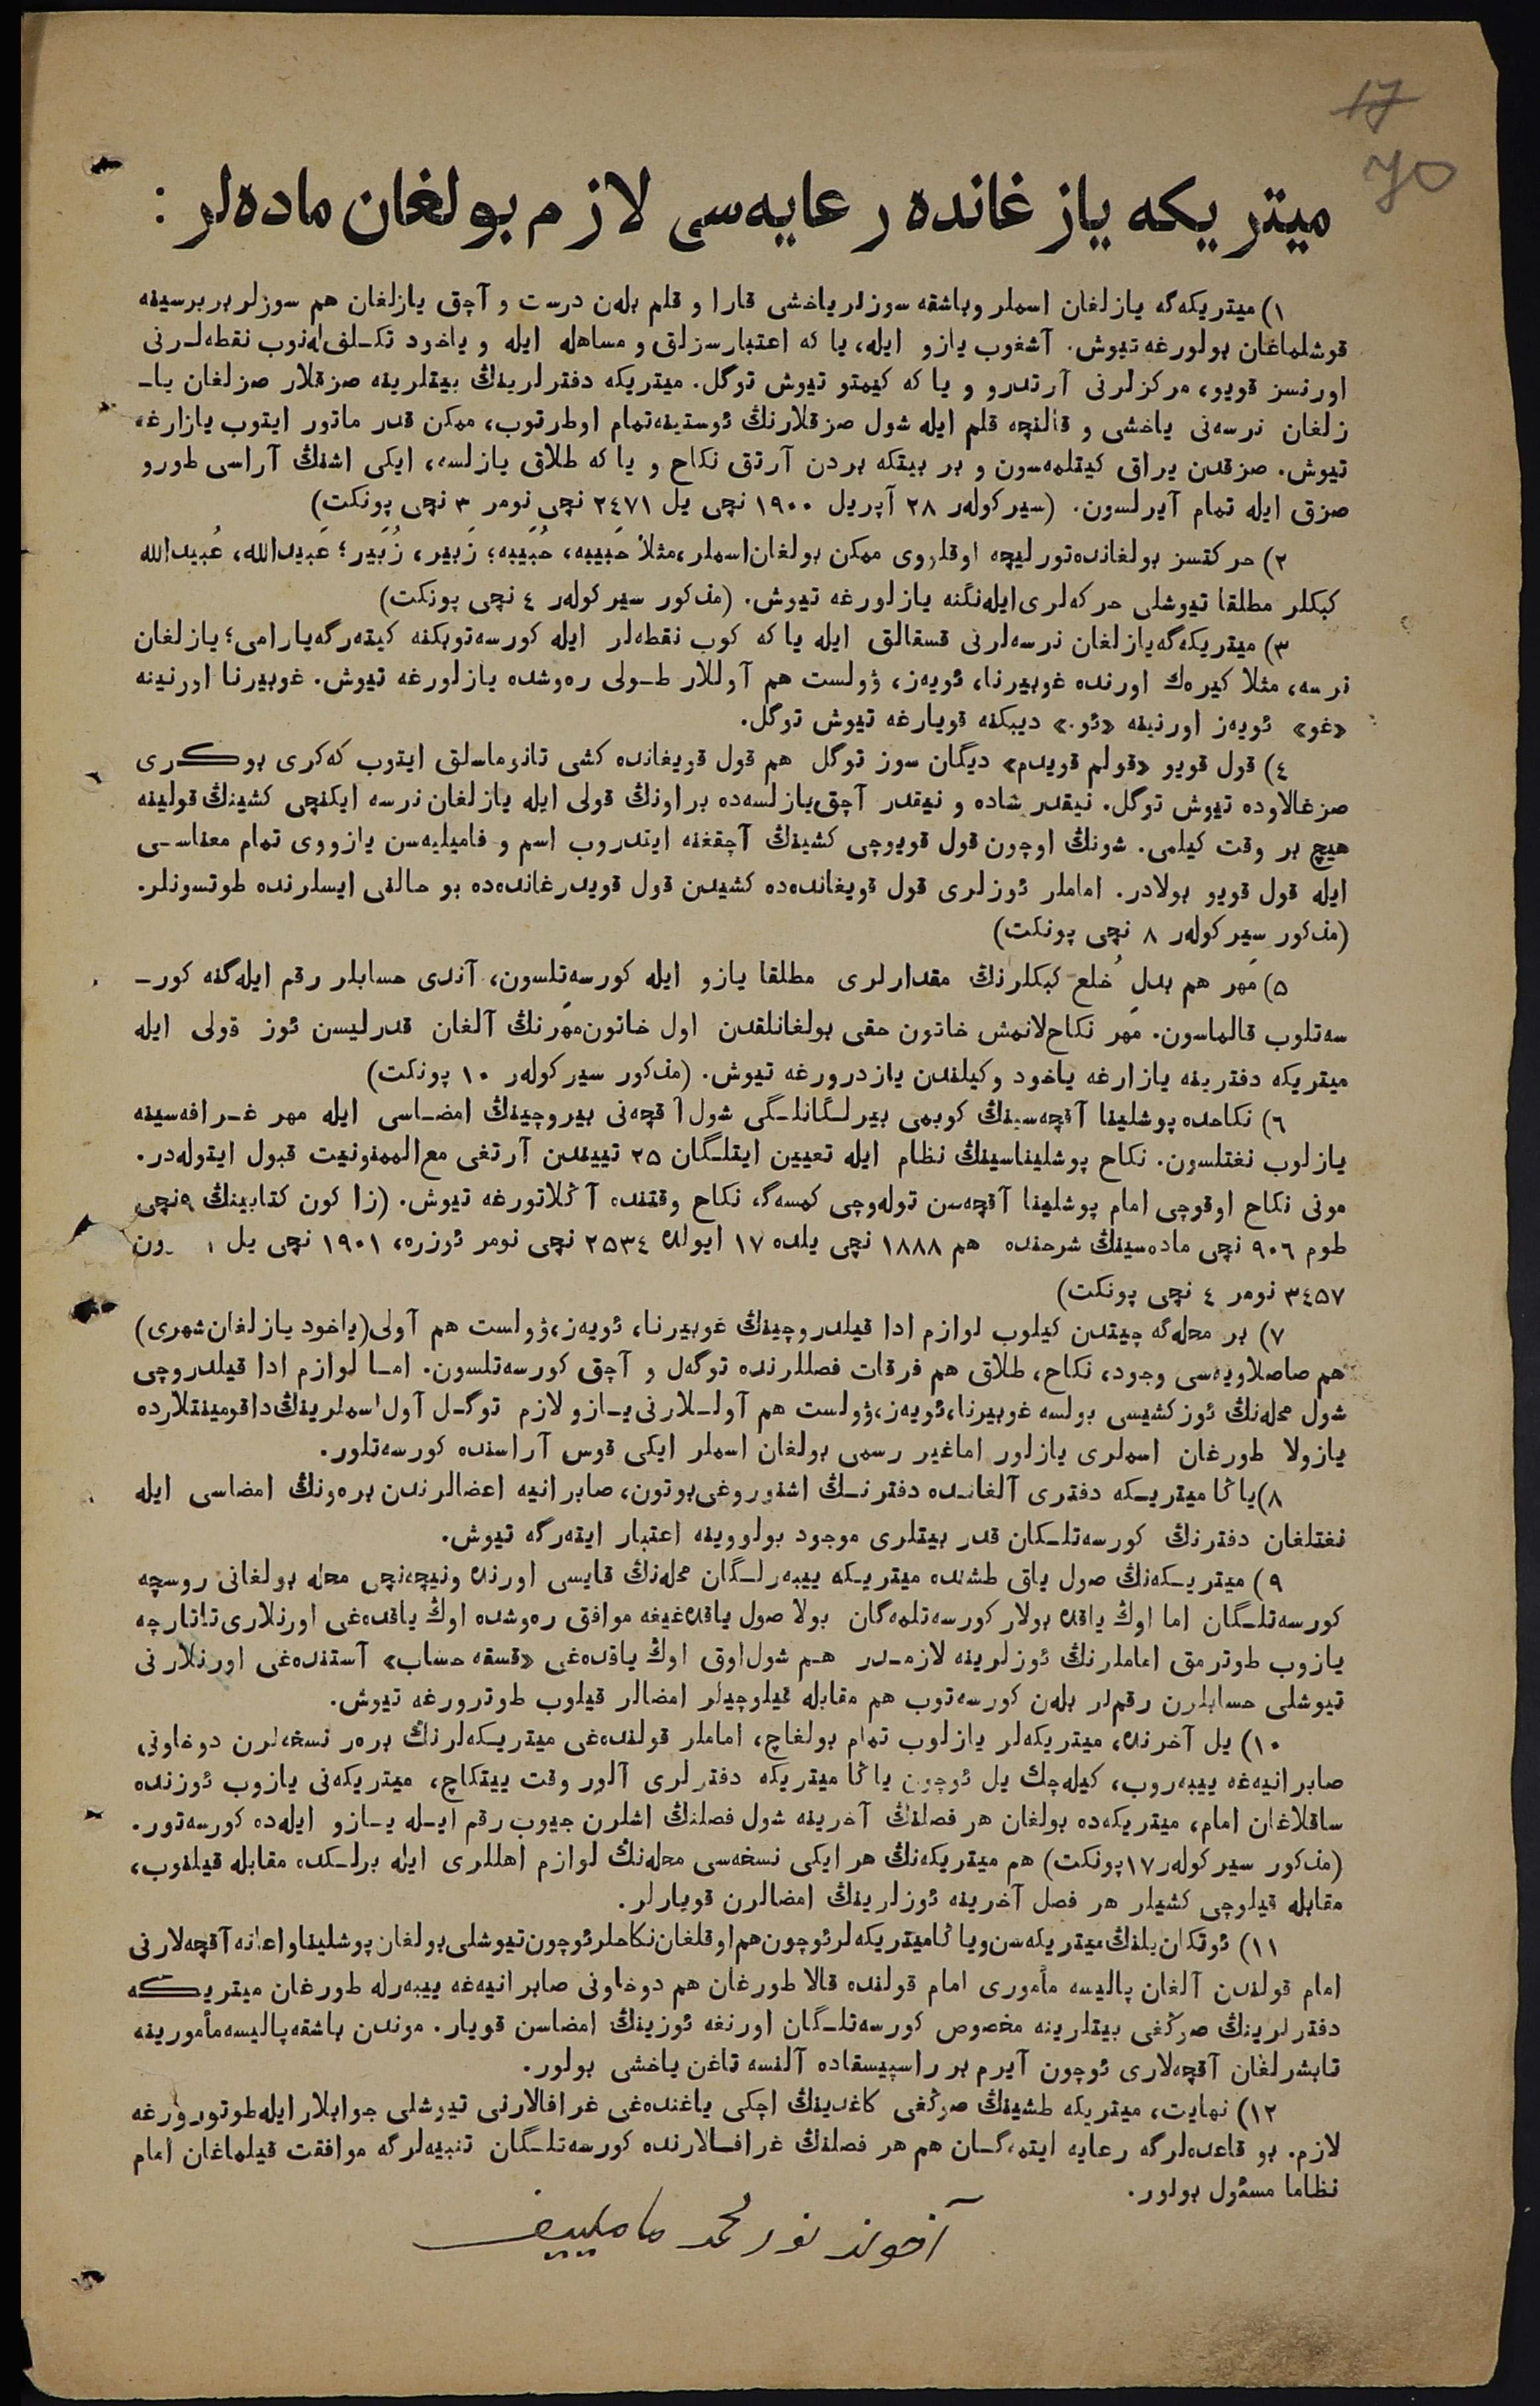 17
70
میتریکه یازغانده رعایه‌سی لازم بولغان ماده‌لر :
۱) میتریکه‌گه یازلغان اسملر وباشقه سوزلر یاخشی قارا و قلم بله‌ن درست و آچق یازلغان هم سوزلر بربرسینه
قوشلماغان بولورغه تیوش. آشغوب یازو ایله، یا که اعتبارسزلق و مساهله ایله و یاخود تکلف‌له‌نوب نقطه‌لرنی
اورنسز قویو، مرکزلرنی آرتدرو و یا که کیمتو تیوش توگل. میتریکه دفترلرینڭ بیتلرینه صزقلار صزلغان یا-
زلغان نرسه‌نی یاخشی و قالنچه قلم ایله شول صزقلارنڭ ئوستینه‌تمام اوطرتوب، ممکن قدر ماتور ایتوب یازارغه
تیوش. صزقدن یراق کیتلمه‌سون و بر بیتکه بردن آرتق نکاح و یا که طلاق یازلسه، ایکی اشنڭ آراسی طورو
صزق ایله تمام آیرلسون. (سیرکوله‌ر ۲۸ آپریل ۱۹۰۰ نچی یل ۲٤۷۱ نچی نومر ۳ نچی پونکت)
۲) حرکتسز بولغانده‌تورلیچه اوقلروی ممکن بولغان‌اسملر، مثلاً حَبیبه، حُبَیبه؛ زَبیر، زُبَیر؛ عَبیدالله، عُبیدالله
کبکلر مطلقا تیوشلی حرکه‌لری‌ایله‌نگنه یازلورغه تیوش. (مذکور سیرکوله‌ر ٤ نچی پونکت)
۳) میتریکه‌گه‌یازلغان نرسه‌لرنی قسقالق ایله یا که کوب نقطه‌لر ایله کورسه‌توبکنه کیته‌رگه‌یارامی؛ یازلغان
نرسه، مثلا کیره‌ك اورنده غوبیرنا، ئویه‌ز، ۋولست هم آوللار طولی ره‌وشده یازلورغه تیوش. غوبیرنا اورنینه
«غو» ئویه‌ز اورنینه «ئو.» دیبکنه قویارغه تیوش توگل.
٤) قول قویو «قولم قویدم» دیگان سوز توگل هم قول قویغانده کشی تانوماسلق ایتوب که‌کری بوکری
صزغالاوده تیوش توگل. نیقدر شاده و نیقدر آچق‌یازلسه‌ده براونڭ قولی ایله یازلغان نرسه ایکنچی کشینڭ قولینه
هیچ بر وقت کیلمی. شونڭ اوچون قول قویوچی کشینڭ آچقغنه ایتدروب اسم و فامیلیه‌سن یازووی تمام معناسی
ایله قول قویو بولادر. اماملر ئوزلری قول قویغانده‌ده کشیدن قول قویدرغانده‌ده بو حالنی ایسلرنده طوتسونلر.
(مذکور سیرکوله‌ر ۸ نچی پونکت)
۵) مَهر هم بدل خُلع کبکلرنڭ مقدارلری مطلقا یازو ایله کورسه‌تلسون، آندی حسابلر رقم ایله‌گنه کور-
سه‌تلوب قالماسون. مَهر نکاح‌لانمش خاتون حقی بولغانلقدن اول خاتون‌مهرنڭ آلغان قدرلیسن ئوز قولی ایله
میتریکه دفترینه یازارغه یاخود وکیلندن یازدرورغه تیوش. (مذکور سیرکوله‌ر ۱۰ پونکت)
٦) نکاحده پوشلینا آقچه‌سینڭ کوبمی بیرلگانلگی شول آقچه‌نی بیروچینڭ امضاسی ایله مهر غرافه‌سینه
یازلوب نغتلسون. نکاح پوشلیناسینڭ نظام ایله تعیین ایتلگان ۲۵ تییندن آرتغی مع‌الممنونیت قبول ایتوله‌در.
مونی نکاح اوقوچی امام پوشلینا آقچه‌سن توله‌وچی کمسه‌گه نکاح وقتنده آڭلاتورغه تیوش. (زاکون کتابینڭ ۹نچی
طوم ۹۰٦ نچی ماده‌سینڭ شرحنده هم ۱۸۸۸ نچی یلده ۱۷ ایولده ۲۵۳٤ نچی نومر ئوزره، ۱۹۰۱ نچی یل
۳٤۵۷ نومر ٤ نچی پونکت)
۷) بر محله‌گه چیتدن کیلوب لوازم ادا قیلدروچینڭ غوبیرنا، ئویه‌ز، ۋولست هم آولی (یاخود یازلغان شهری)
هم صاصلاویه‌سی وجود، نکاح، طلاق هم فرقات فصللرنده توگه‌ل و آچق کورسه‌تلسون. اما لوازم ادا قیلدروچی
شول محله‌نڭ ئوز کشیسی بولسه غوبیرنا، ئویه‌ز، ۋولست هم آوللارنی یازو لازم توگل آول اسملرینڭ داقومینتلارده
یازولا طورغان اسملری یازلور اماغیر رسمی بولغان اسملر ایکی قوس آراسنده کورسه‌تلور.
۸) یاڭا میتریکه دفتری آلغانده دفترنڭ اشنوروغی‌بوتون، صابرانیه اعضالرندن بره‌ونڭ امضاسی ایله
نغتلغان دفترنڭ کورسه‌تلکان قدر بیتلری موجود بولووینه اعتبار ایته‌رگه تیوش.
۹) میتریکه‌نڭ صول یاق طشنده میتریکه ییبه‌رلگان محله‌نڭ قایسی اورنده ونیچه‌نچی محله بولغانی روسچه
کورسه‌تلگان اما اوڭ یاقده بولار کورسه‌تلمه‌گان بولا صول یاقده‌غیغه موافق ره‌وشده اوڭ یاقده‌غی اورنلاری‌تاتارچه
یازوب طوترمق اماملرنڭ ئوزلرینه لازمدر هم شول‌اوق اوڭ یاقده‌غی «قسقه حساب» آستنده‌غی اورنلارنی
تیوشلی حسابلرن رقملر بله‌ن کورسه‌توب هم مقابله قیلوچیلر امضالر قیلوب طوترورغه تیوش.
۱۰) یل آخرنده، میتریکه‌لر یازلوب تمام بولغاچ، اماملر قولنده‌غی میتریکه‌لرنڭ بره‌ر نسخه‌لرن دوخاونی
صابرانیه‌غه ییبه‌روب، کیله‌چك یل ئوچون یاڭا میتریکه دفترلری آلور وقت ییتکاچ، میتریکه‌نی یازوب ئوزنده
ساقلاغان امام، میتریکه‌ده بولغان هر فصلنڭ آخرینه شول فصلنڭ اشلرن جیوب رقم ایله یازو ایله‌ده کورسه‌تور.
(مذکور سیرکوله‌ر ۱۷پونکت) هم میتریکه‌نڭ هر ایکی نسخه‌سی محله‌نڭ لوازم اهللری ایله برلکده مقابله قیلنوب،
مقابله قیلوچی کشیلر هر فصل آخرینه ئوزلرینڭ امضالرن قویارلر.
۱۱) ئوتکان یلنڭ میتریکه‌سن ویاڭا میتریکه‌لر ئوچون هم اوقلغان نکاحلر ئوچون تیوشلی بولغان پوشلینا واعانه آقچه‌لارنی
امام قولندن آلغان پالیسه مأموری امام قولنده قالا طورغان هم دوخاونی صابرانیه‌غه ییبه‌رله طورغان میتریکه
دفترلرینڭ صوڭغی بیتلرینه مخصوص کورسه‌تلگان اورنغه ئوزینڭ امضاسن قویار. موندن باشقه پالیسه مأمورینه
تابشرلغان آقچه‌لاری ئوچون آیرم بر راسپیسقاده آلنسه تاغن یاخشی بولور.
۱۲) نهایت، میتریکه طشینڭ صوڭغی کاغدینڭ اچکی یاغنده‌غی غرافالارنی تیوشلی جوابلار ایله طوتورورغه
لازم. بو قاعده‌لرگه رعایه ایتمه‌گان هم هر فصلنڭ غرافالارنده کورسه‌تلگان تنبیه‌لرگه موافقت قیلماغان امام
نظاما مسئول بولور.
آخوند نورمحمد ماملییف